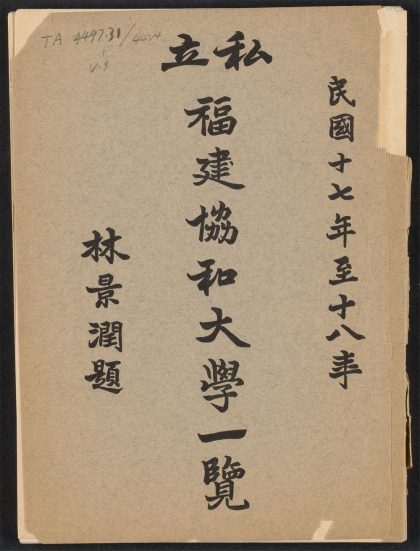 TA 4497.31/4424
v.1
民國十七年至十八年
私立
福建協和大學一覽
林景潤題